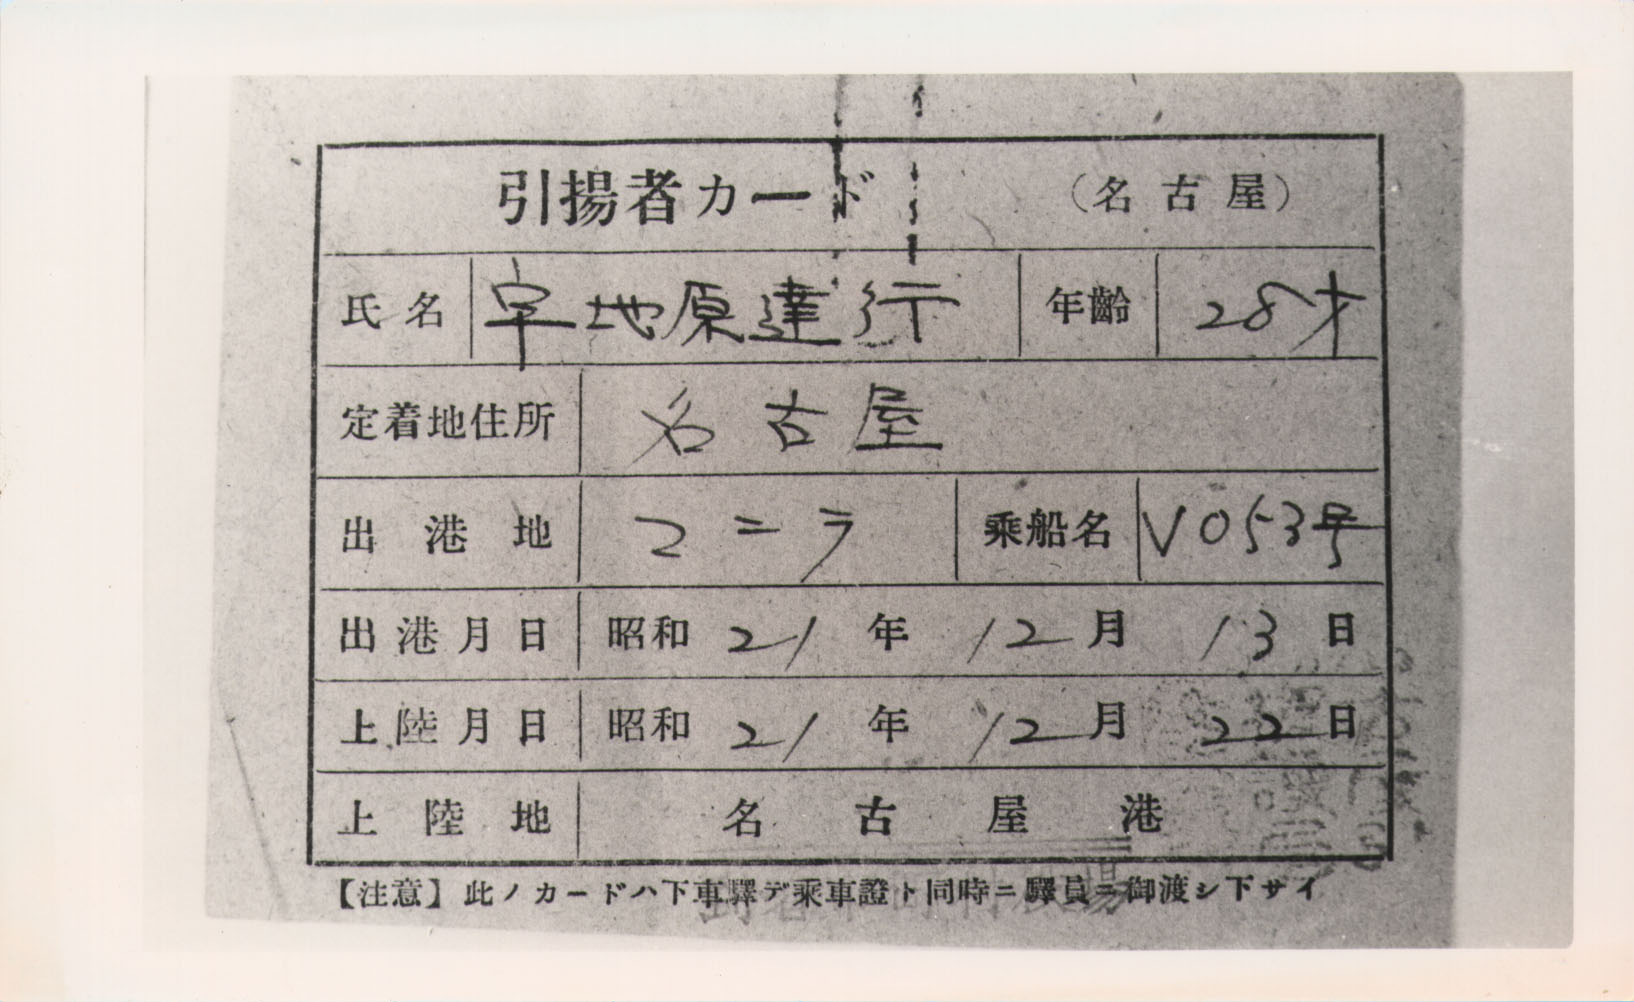 引揚者カード （名古屋）
氏名 宇地原達行 年齢 28才
定着地住所 名古屋
出港地 マニラ 乗船名 V053号
出港月日 昭和21年12月13日
上陸月日 昭和21年12月22日
上陸地 名古屋港
【注意】此ノカードハ下車驛デ乘車證ト同時ニ驛員ニ御渡シ下サイ